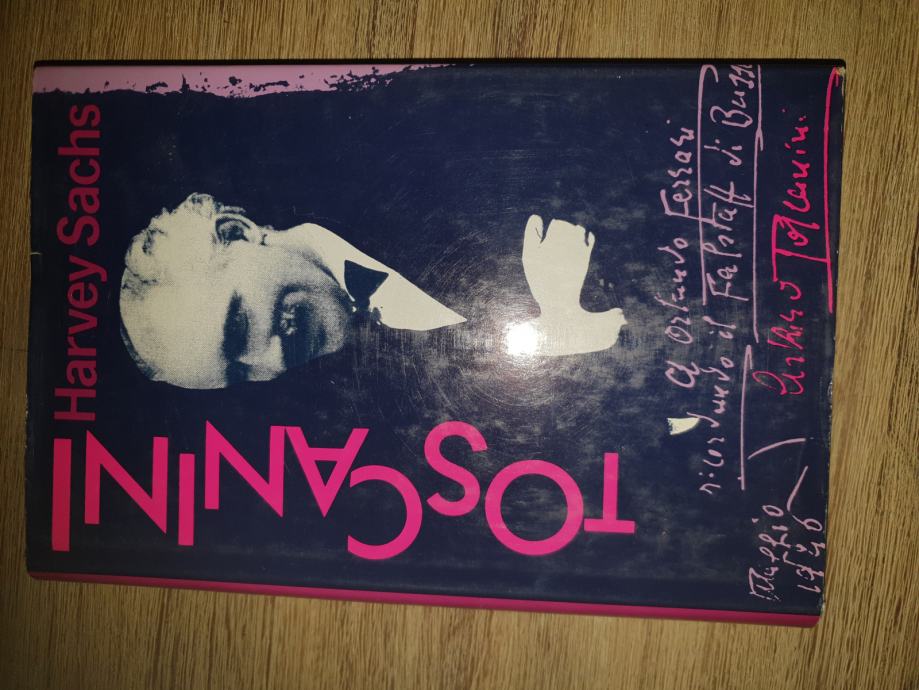 Harvey Sachs
TOSCANINI
Orlando Ferrari
ricordando il Falstaff di
Arturo Toscanini
Maggio